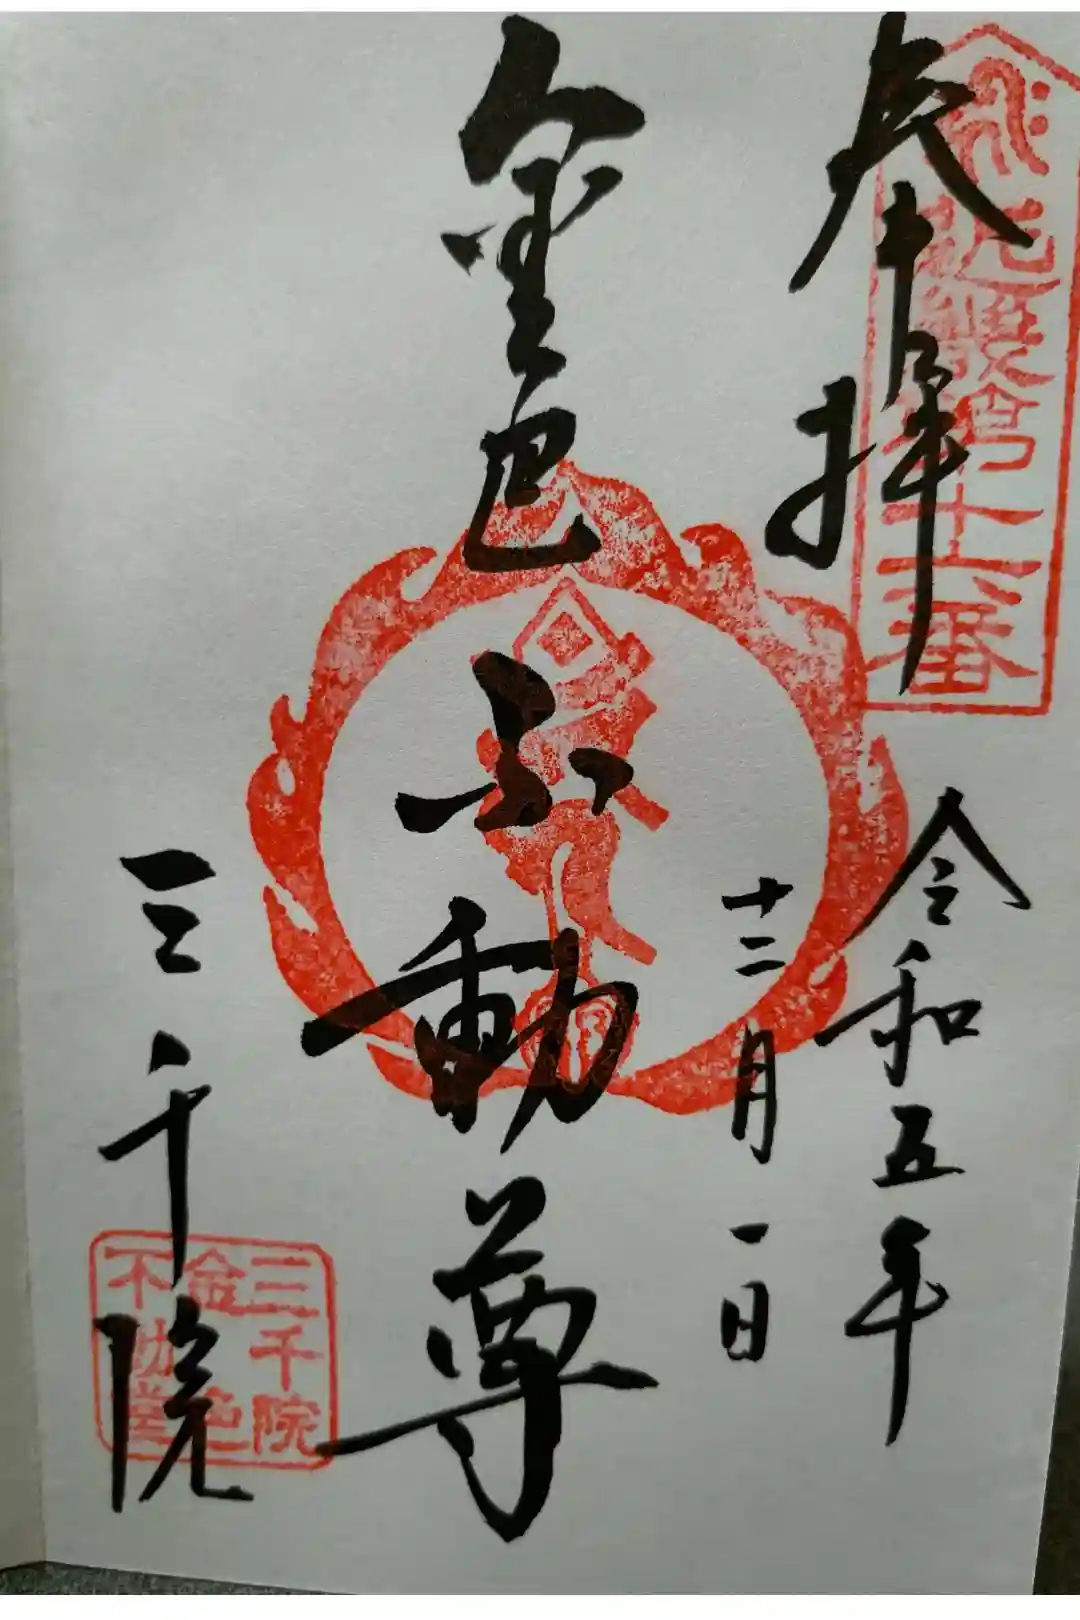 奉拝
近畿第十六番
令和五年
十二月一日
金色
不動尊
三千院
三千院
金色
不動堂